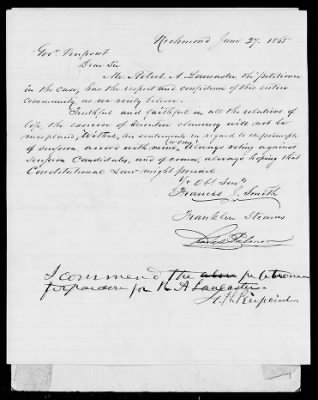 Richmond June 27. 1865
Gov. Peirpoint
Dear Sir
Mr. Robert A. Lancaster the petitioner
in the case, has the respect and confidence of this entire
community as we truly believe.
Faithful and faithful in all the relations of
life the exercise of Executive clemency will not be
misplaced. Withal, his sentiments in regard to the
of secession accord with mine (
) always voting against
Secession Candidates, and of course, always hoping that
Constitutional Law might prevail
Yr Obt Servt
Francis J. Smith
Franklin Stearns
I commend the petitioner
for pardon for R A Lancaster
F. H. Peirpoint